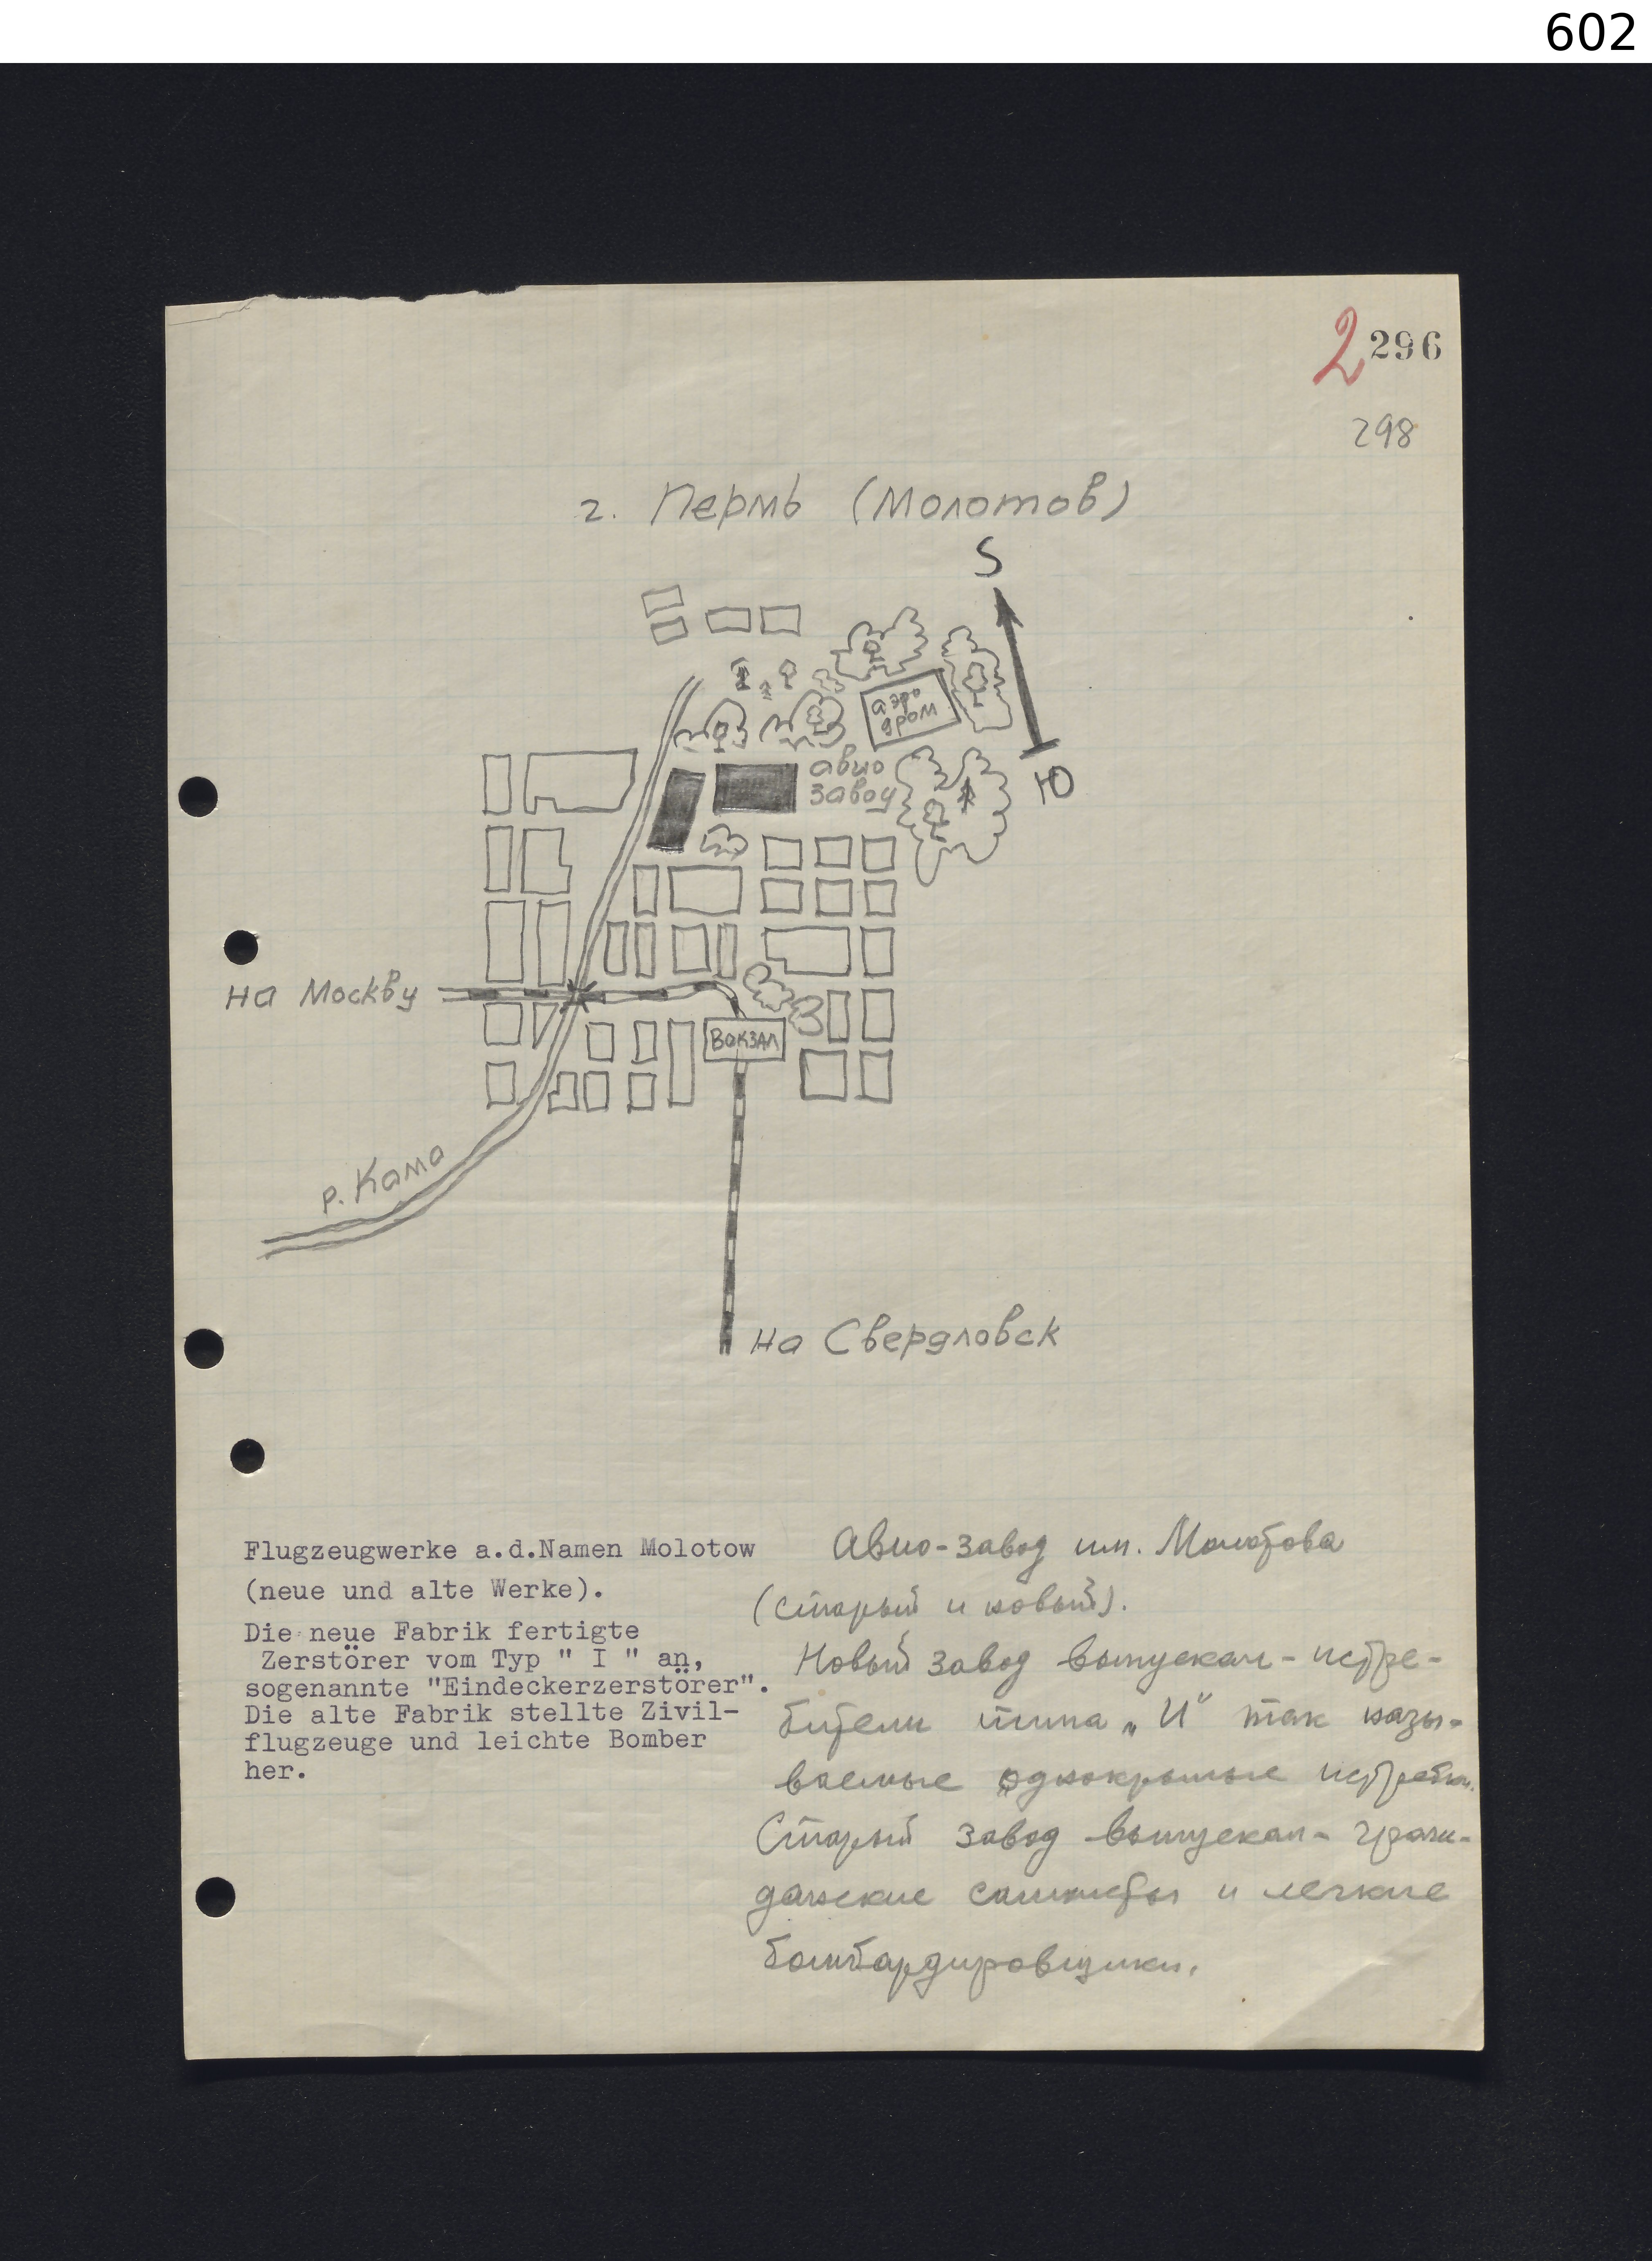 602
2 296
298
г. Пермь (Молотов)
S
аэро
дром
авио
завод
Ю
на Москву
Вокзал
р. Кама
на Свердловск
Flugzeugwerke a.d.Namen Molotow
(neue und alte Werke).
Die neue Fabrik fertigte
Zerstörer vom Typ " I " an,
sogenannte "Eindeckerzerstörer".
Die alte Fabrik stellte Zivil-
flugzeuge und leichte Bomber
her.
Авио-завод им. Молотова
(старый и новый).
Новый завод выпускал - истре-
бители типа „И" так назы-
ваемые однокрылые
Старый завод выпускал - граж-
данские самолеты и легкие
бомбардировщики.